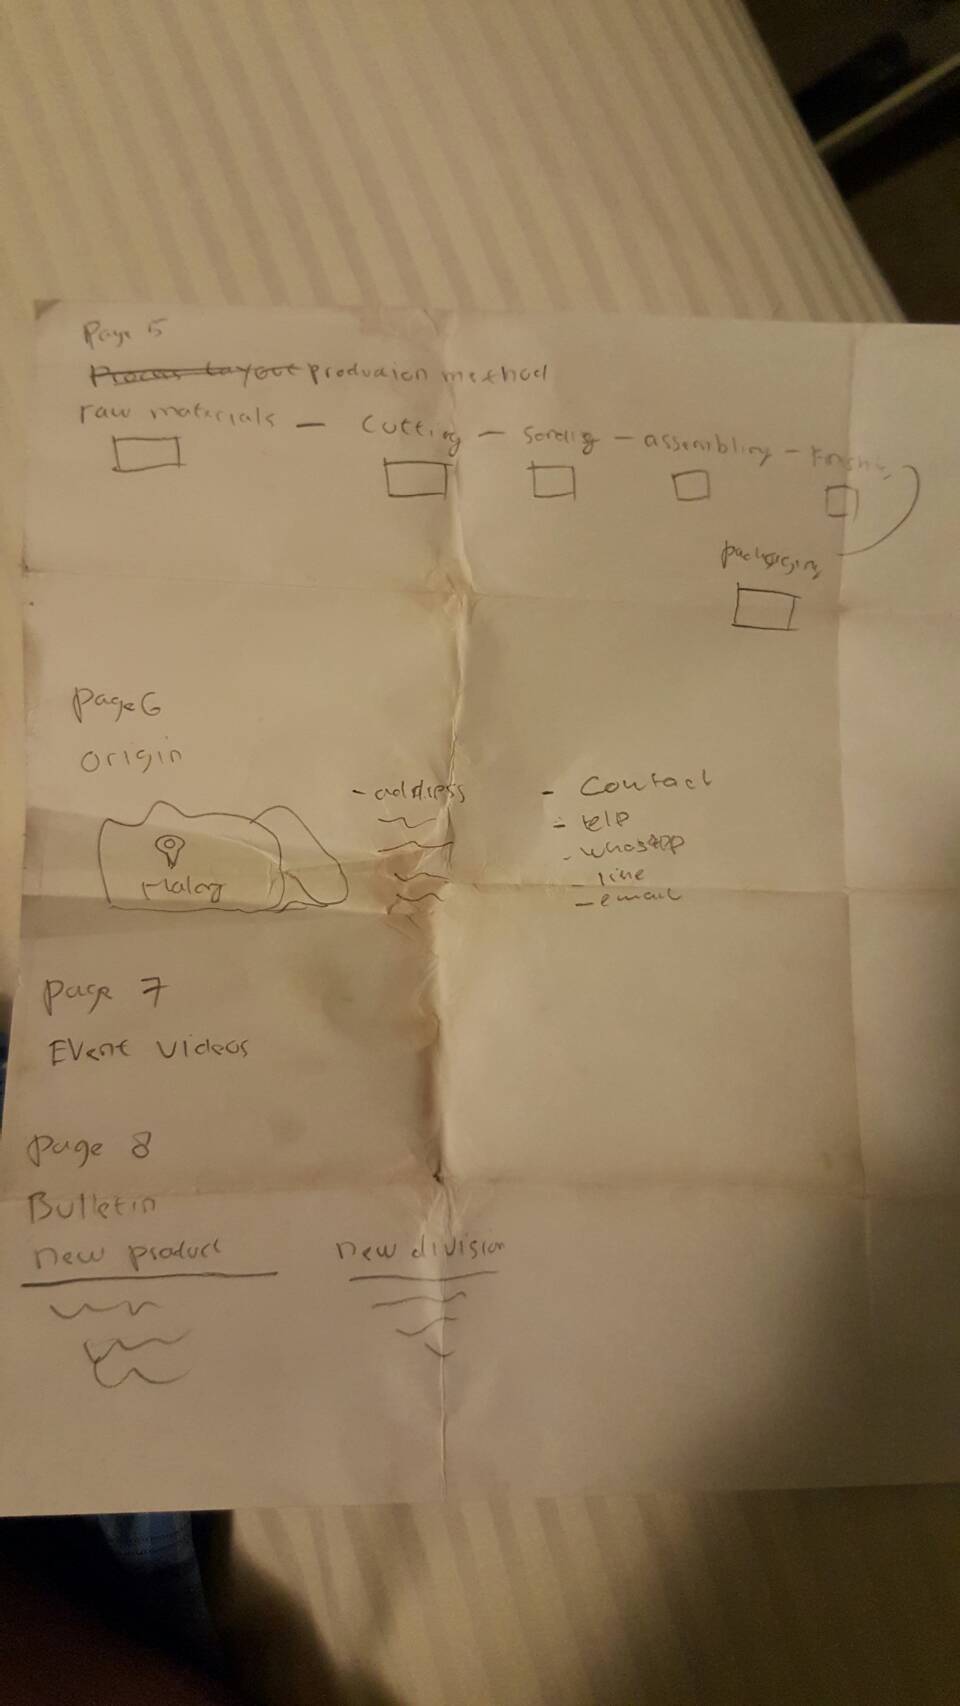 Page 5
Process Layout production method
raw materials — Cutting — Sanding — assembling — Finishing
packaging
page 6
origin
- address - Contact
- telp
- whatsapp
Malang - line
- email
page 7
Event videos
page 8
Bulletin
new product new division